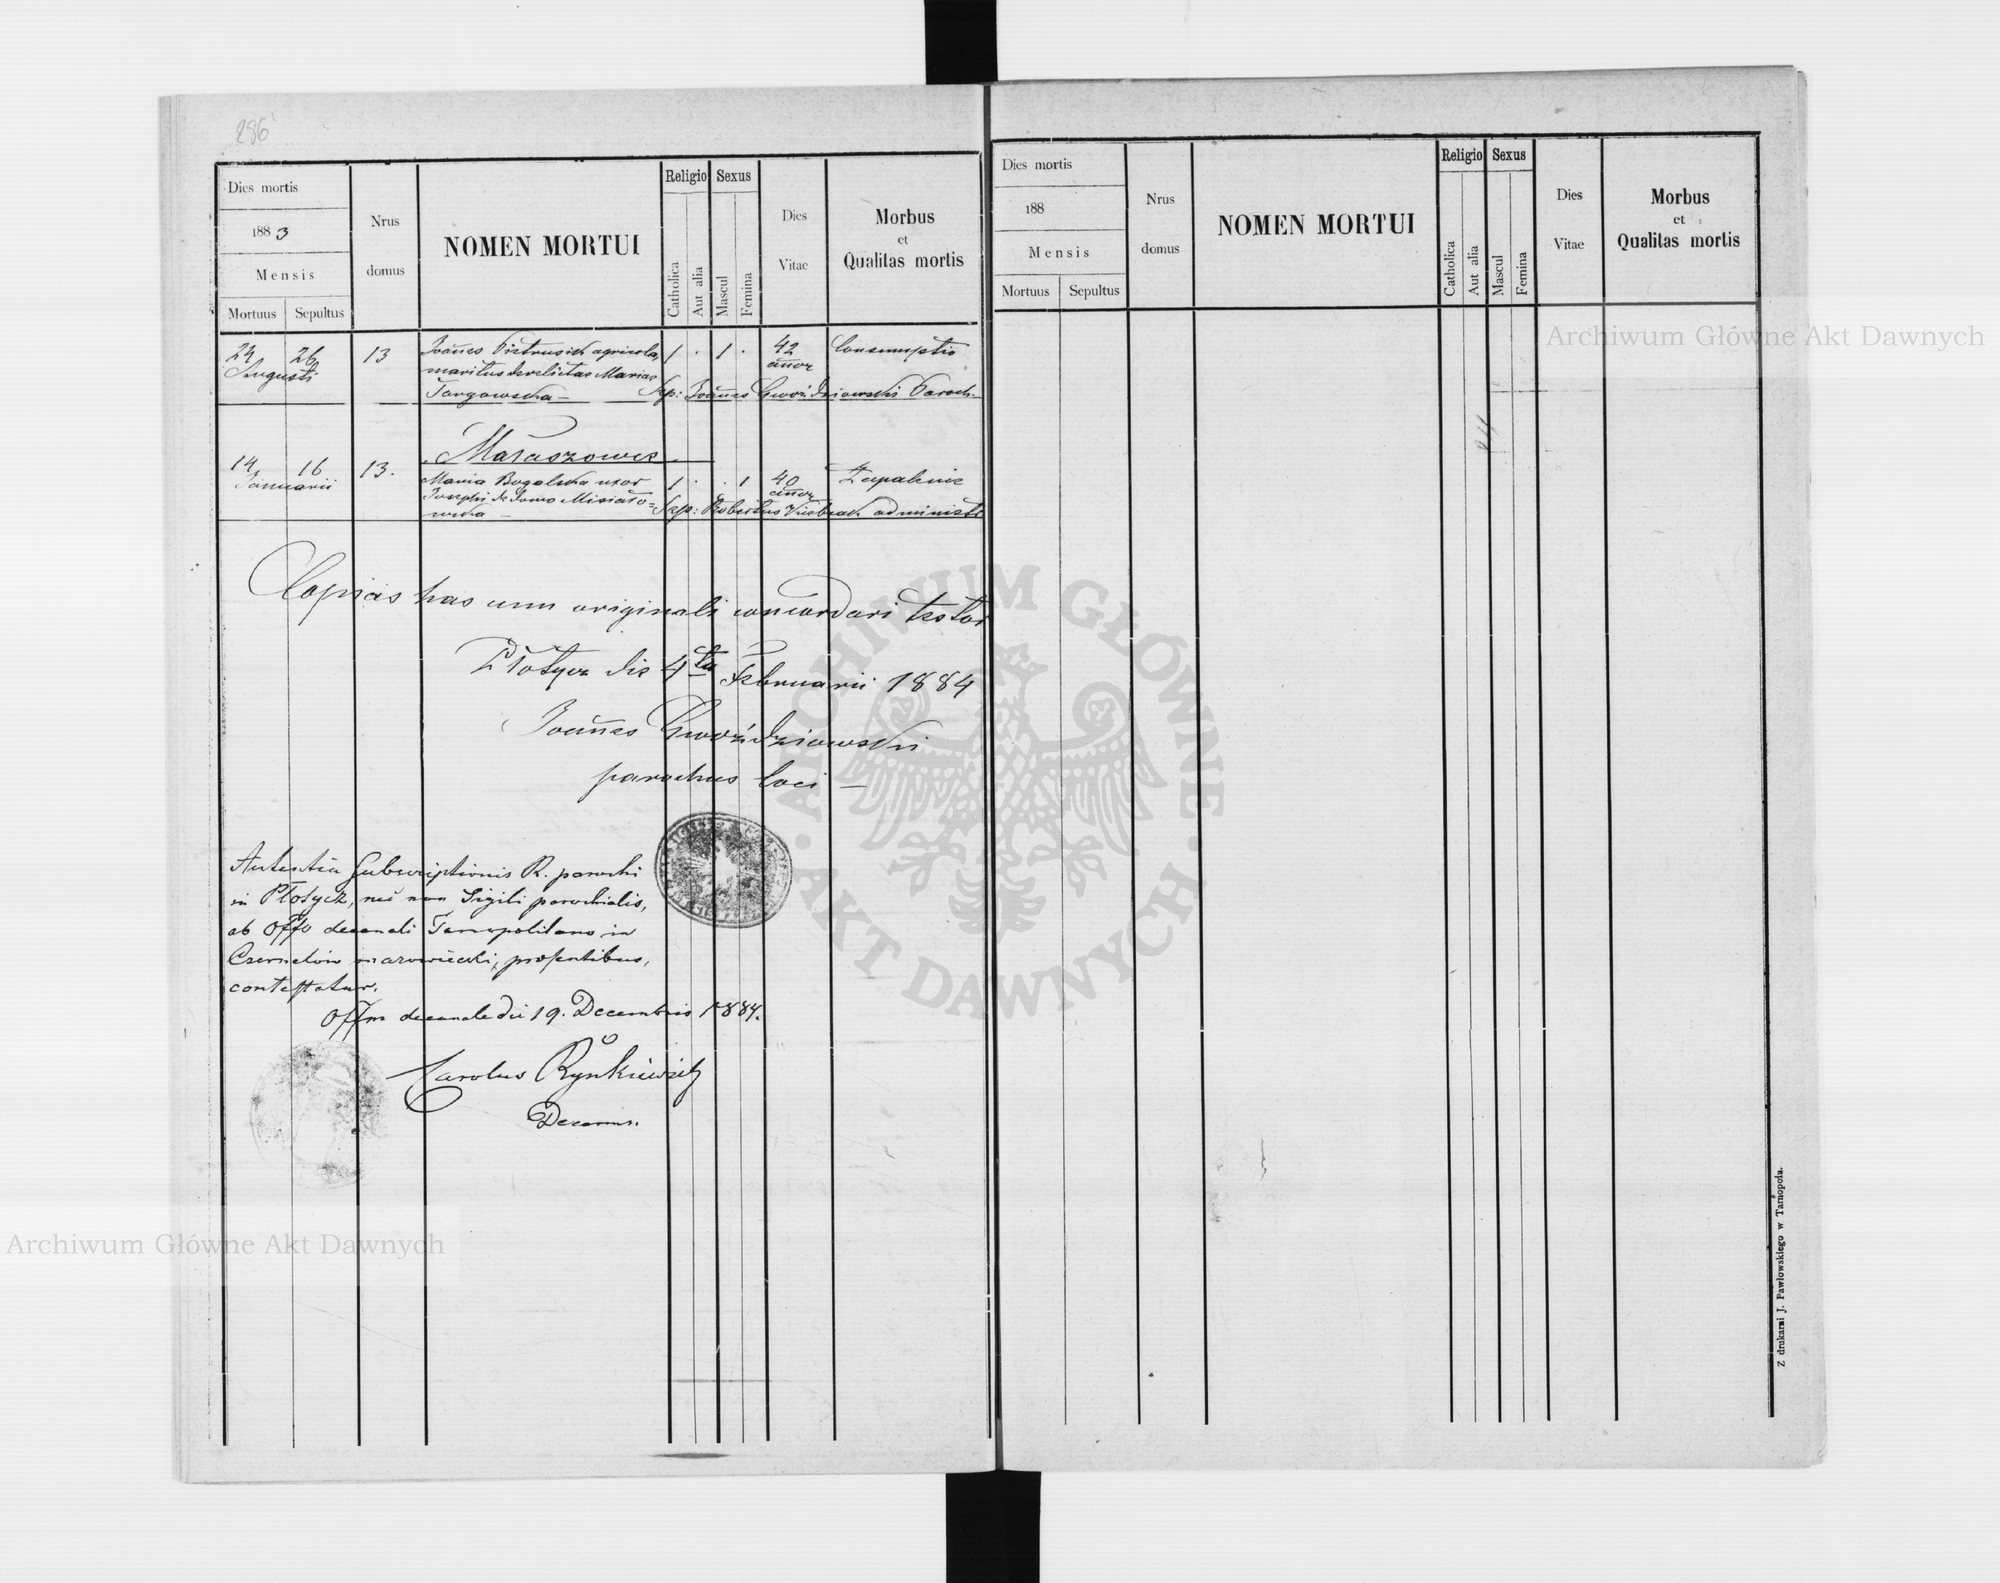 286
Dies mortis
1883
Mensis
Mortuus Sepultus
Nrus
domus
NOMEN MORTUI
Religio
Catholica
Aut alia
Sexus
Mascul
Femina
Dies
Vitae
Morbus
et
Qualitas mortis
24 26 13 Joānes Pietrusich agricola, 1 . 1 . 42 Consumptio
Augusti maritus derelictae Mariae añor
Targowska — Sep: Joānes Gwoździowski Paroch.
Małaszowce
14 16 13. Maria Bogalska uxor 1 . . 1 40
Januarii Josephi de domo Misiało= añor
wska — Sep: Robertus administ
Copias has cum originali concordari testor
Płotycz die 4ta Februarii 1884
Joānes Gwoździowski
parochus loci —
subscriptionis R. parochi
in Płotycz, nec non Sigili parochialis,
ab Offo decanali Tarnopolitano in
Czernelów mazowiecki, presentibus,
contestatur.
Offm decanale die 19. Decembris 1884.
Carolus Rynkiewicz
Decanus.
Dies mortis
188
Mensis
Mortuus Sepultus
Nrus
domus
NOMEN MORTUI
Religio
Catholica
Aut alia
Sexus
Mascul
Femina
Dies
Vitae
Morbus
et
Qualitas mortis
Z drukarni J. Pawłowskiego w Tarnopolu.
Archiwum Główne Akt Dawnych
Archiwum Główne Akt Dawnych
ARCHIWUM GŁÓWNE · AKT DAWNYCH ·